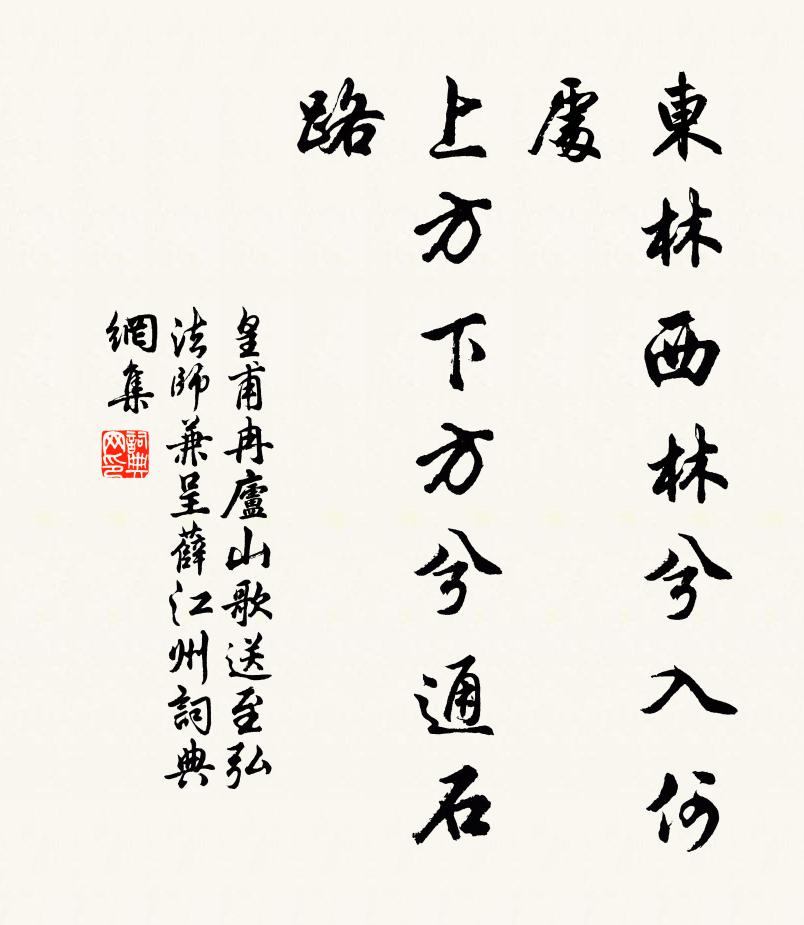 東林西林兮入何
處
上方下方兮通石
路
皇甫冉廬山歌送至弘
法師兼呈薛江州詞典
網集
詞典
网印